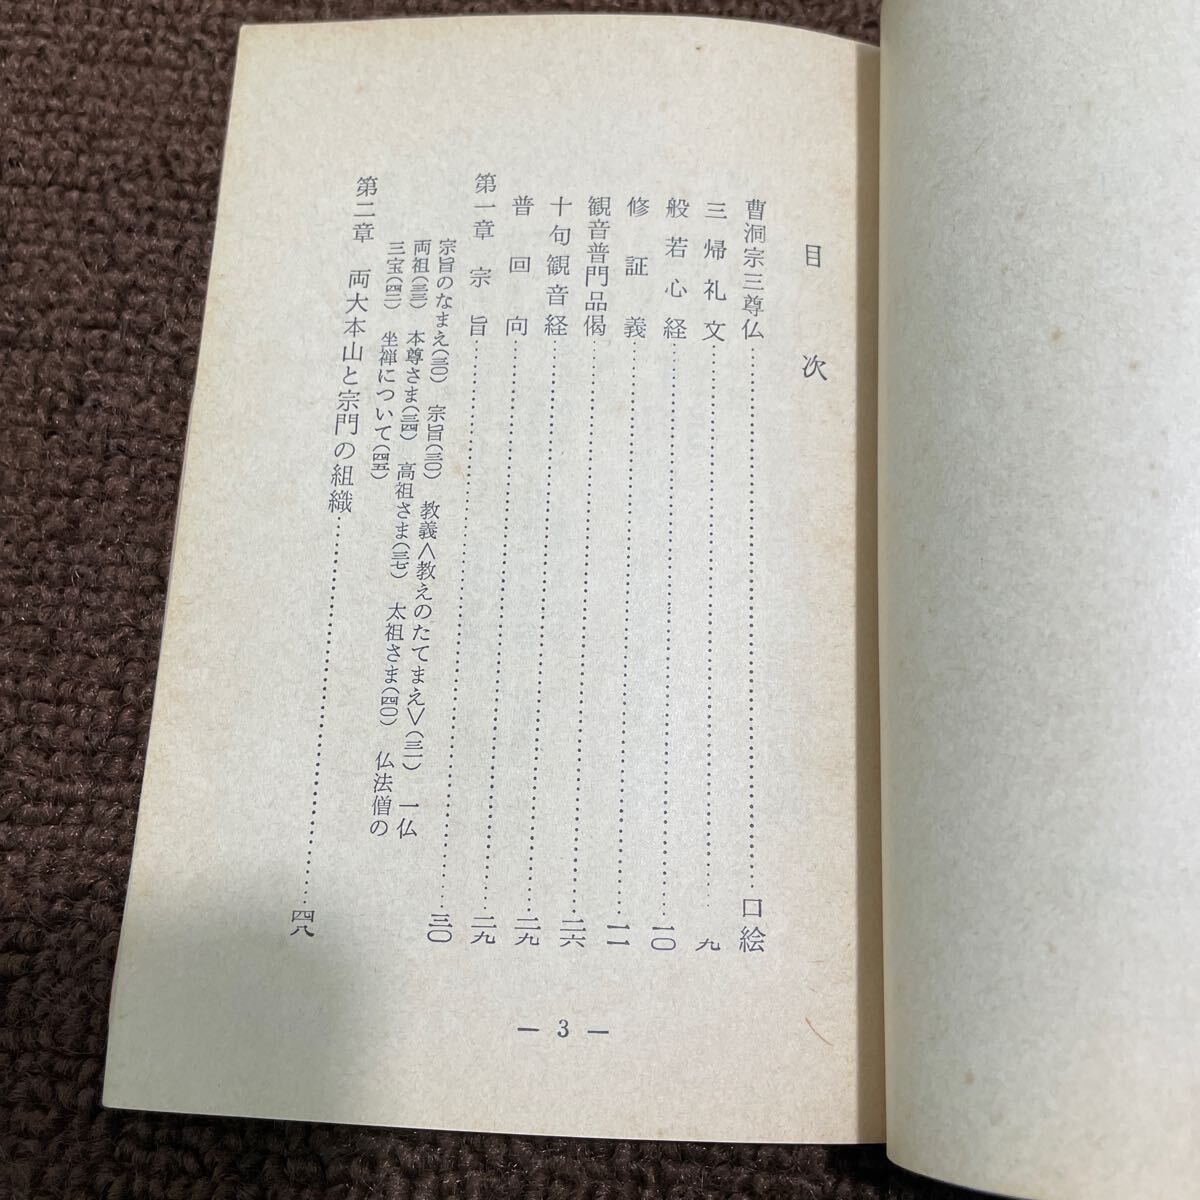 目次
曹洞宗三尊仏……………………口絵
三帰礼文……………………九
般若心経……………………一〇
修証義……………………一一
観音普門品偈……………………二六
十句観音経……………………二九
普回向……………………二九
第一章 宗旨……………………三〇
宗旨のなまえ(三〇) 宗旨(三〇) 教義<教えのたてまえ>(三一) 一仏
両祖(三三) 本尊さま(三四) 高祖さま(三七) 太祖さま(四〇) 仏法僧の
三宝(四二) 坐禅について(四五)
第二章 両大本山と宗門の組織……………………四八
— 3 —